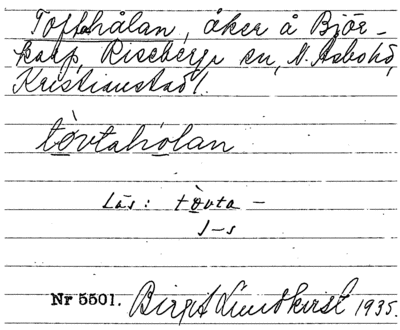 Toftahålan, åker å Björ-
karp, Riseberga sn, N. Åsbo hd,
Kristianstad l.
tòvtahòlan
Läs: tòvta-
1-s
Nr 5501. Birgit Lundkvist 1935.